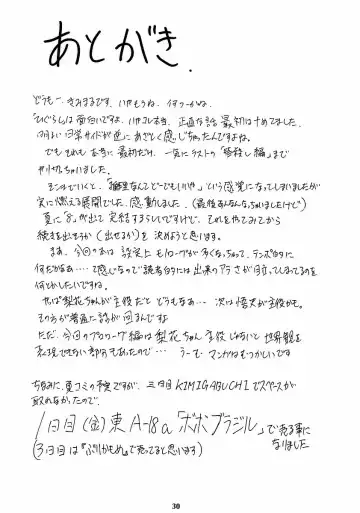 あとがき.
どうもー、きみまるです、いやもうね、何つーかね。
「ひぐらし」は面白いですよ、ハマりました、正直な話 最初はナメてました。
明るい日常サイドが逆にあざとく感じちゃったんですよね。
でもそれも本当に最初だけ、一気にラストの「祭殺し編」まで
やり切っちゃいました。
実に燃える展開でした。感動しました(最後あんなんなっちゃいましたけど)
夏に「8」が出て完結するらしいですけど、それをやってみてから
続きを出そうか(出せるか)を決めようと思います。
まぁ、今回の本は設定上モノローグが多くなっちゃって、テンポ的に
何だかなぁ…って感じなので読者的には出来のアラさが目立ってしまってるのを
何とかしたいですね。
やっぱ梨花ちゃんが主役だとどうもなぁ… 次は悟史が主役かも。
その方が普通に話が回るんですよ
ただ、今回のプロローグ編は梨花ちゃん主役じゃないと世界観を
表現できない部分もあったので… うーむ、マンガはむつかしいです
ちなみに、夏コミの予定ですが、三日目KIMIGABUCHIでスペースが
取れなかったので、
1日目(金)東 A-18a「ボボブラジル」で売る事に
なりました
(3日目は「ぷりかもめ」で売ってると思います)
30